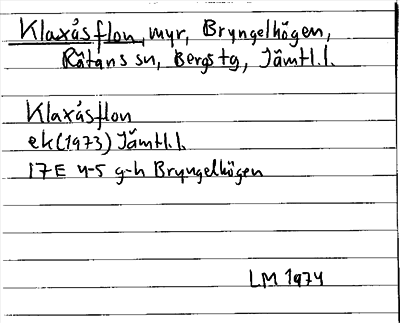 Klaxåsflon, myr, Bryngelhögen,
Råtans sn, Bergs tg, Jämtl.l.
Klaxåsflon
ek (1973) Jämtl.l.
17E 4-5 g-h Bryngelhögen
LM 1974